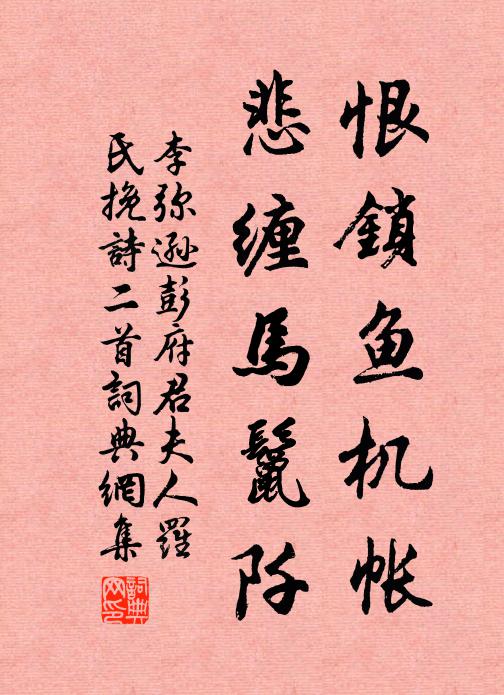 恨鎖鱼机帐
悲缠馬鬣阡
李弥遜彭府君夫人羅
氏挽詩二首詞典網集
詞典网印